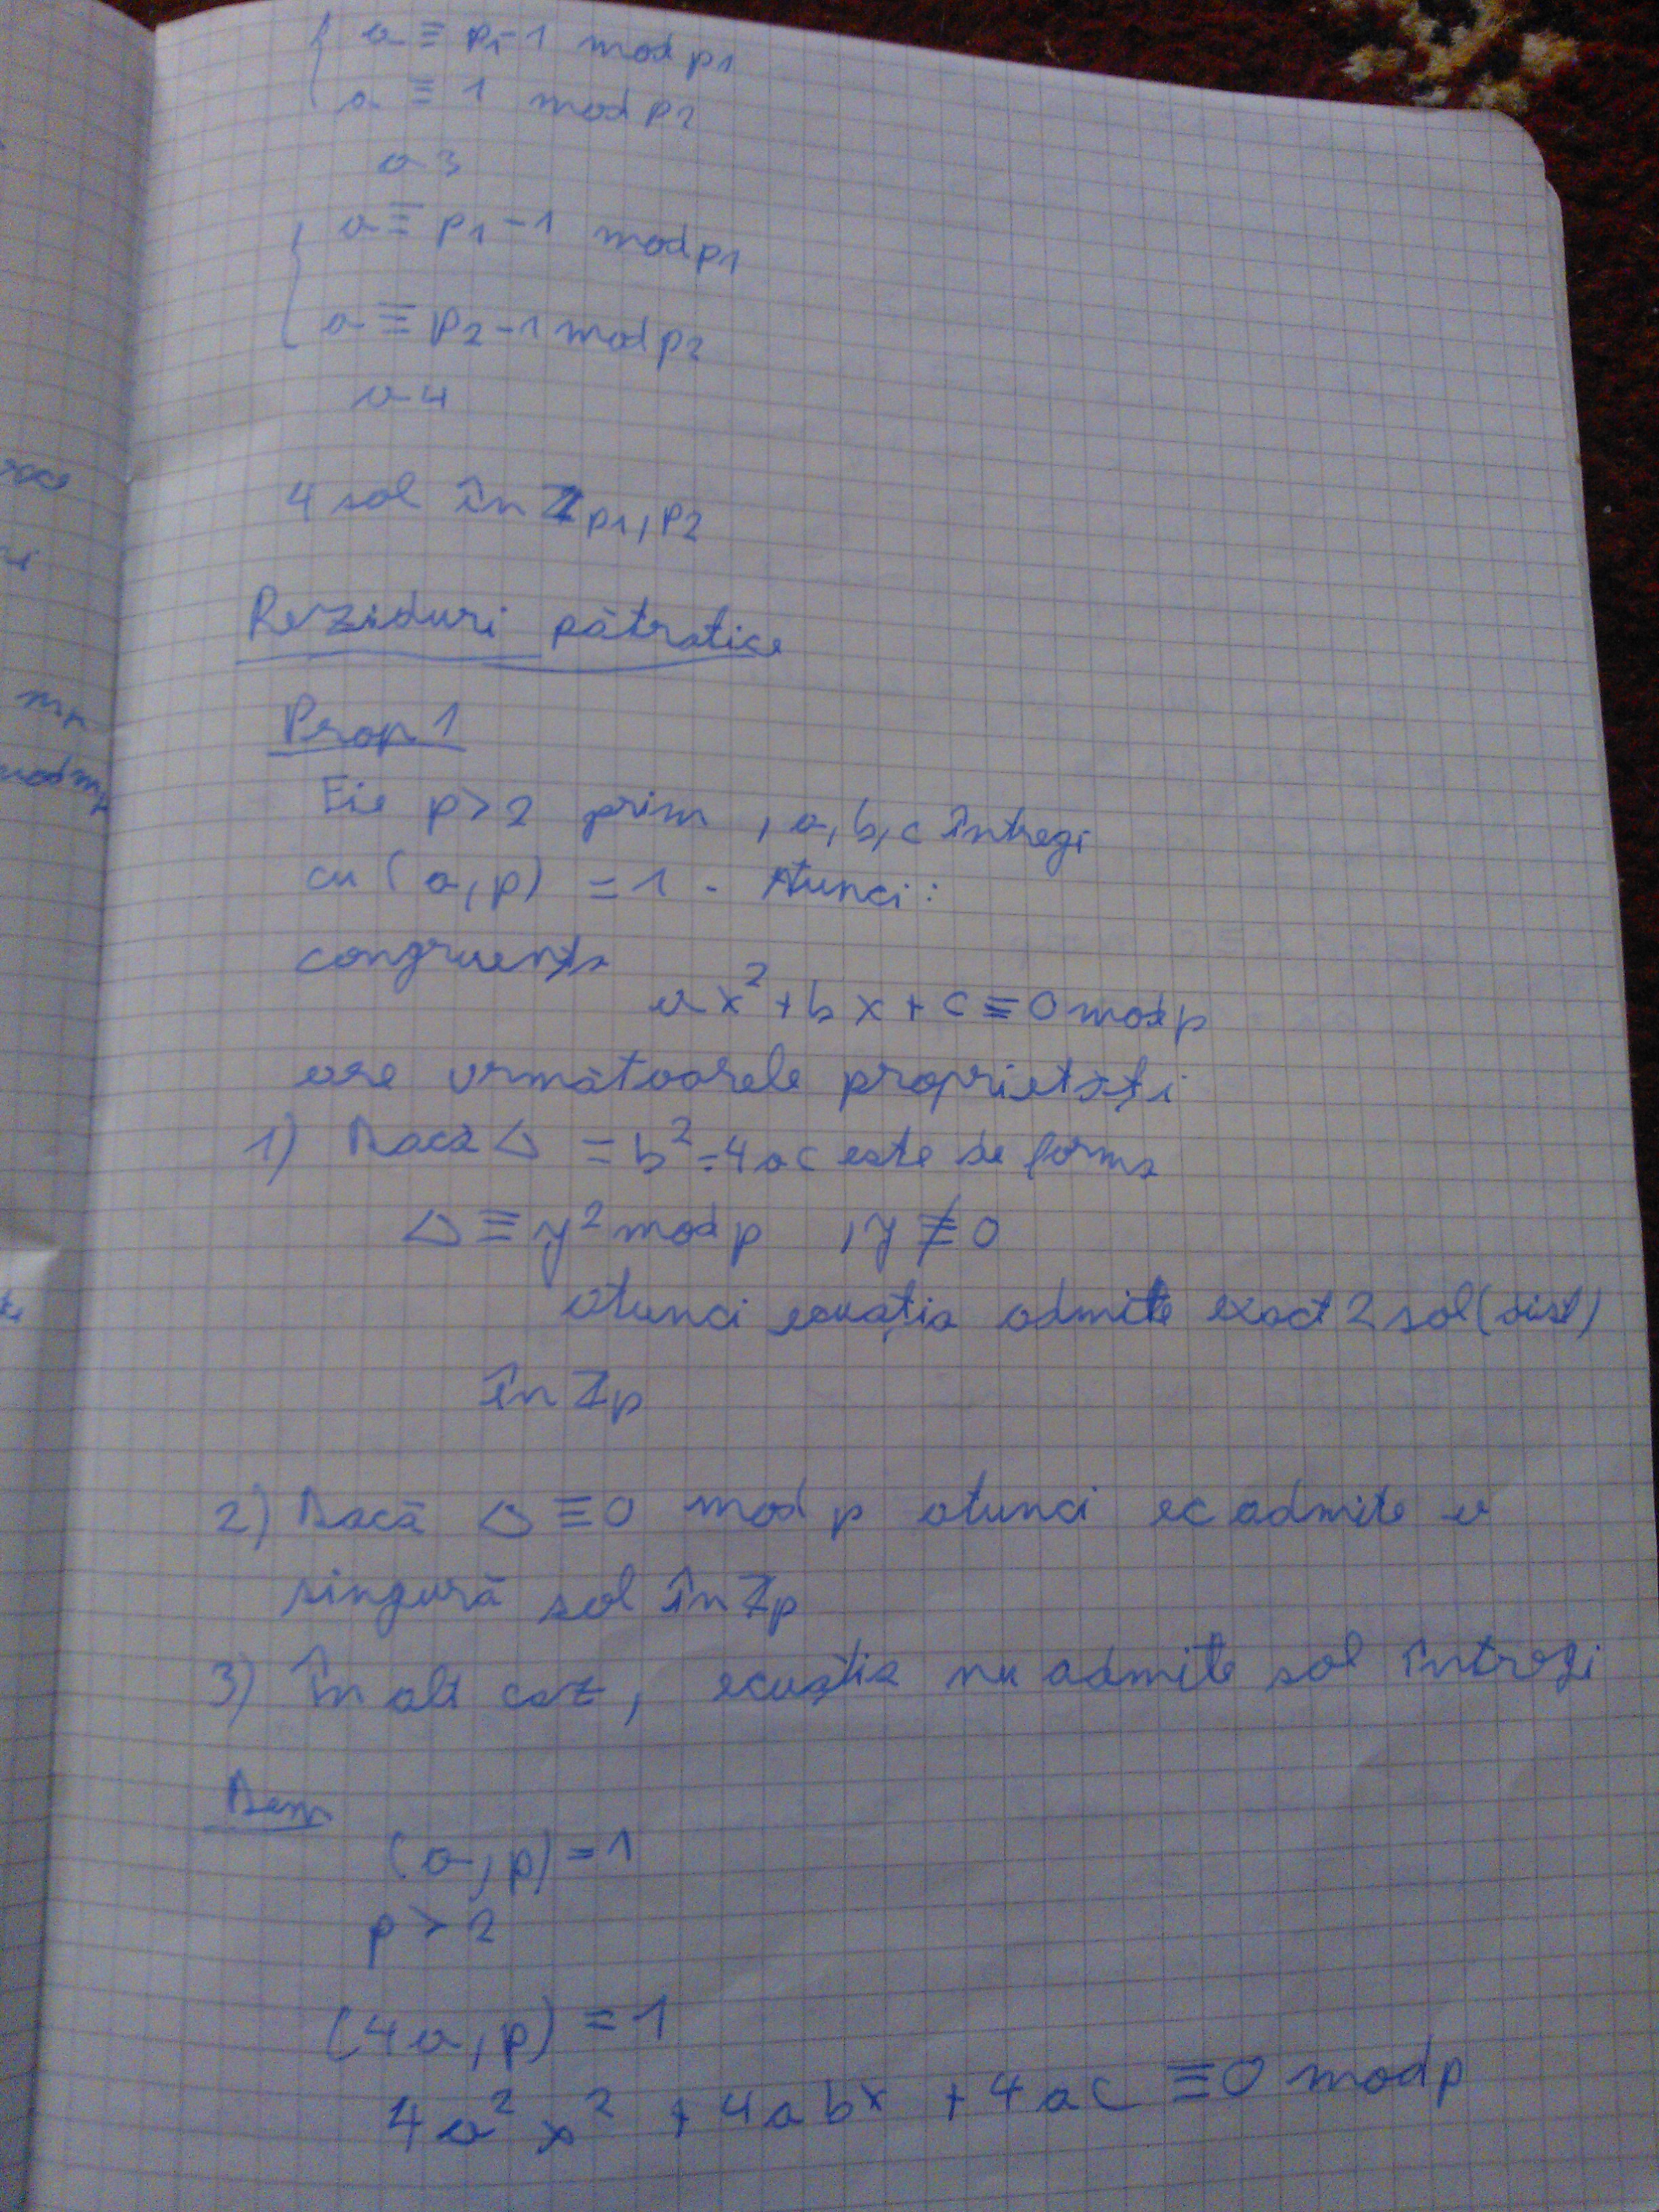 a ≡ p1-1 mod p1
a ≡ 1 mod p2
a3
a ≡ p1-1 mod p1
a ≡ p2-1 mod p2
a4
4 sol în Zp1,p2
Reziduri pătratice
Prop 1
Fie p>2 prim, a,b,c întregi
cu (a,p) = 1. Atunci:
congruența
ax²+bx+c≡0 mod p
are următoarele proprietăți
1) Dacă Δ = b²-4ac este de forma
Δ ≡ y² mod p , y ≢ 0
atunci ecuația admite exact 2 sol (dist)
în Zp
2) Dacă Δ ≡0 mod p atunci ec admite o
singură sol în Zp
3) În alt caz, ecuația nu admite sol întregi
Dem
(a,p)=1
p>2
(4a,p)=1
4a²x² + 4abx + 4ac ≡0 mod p